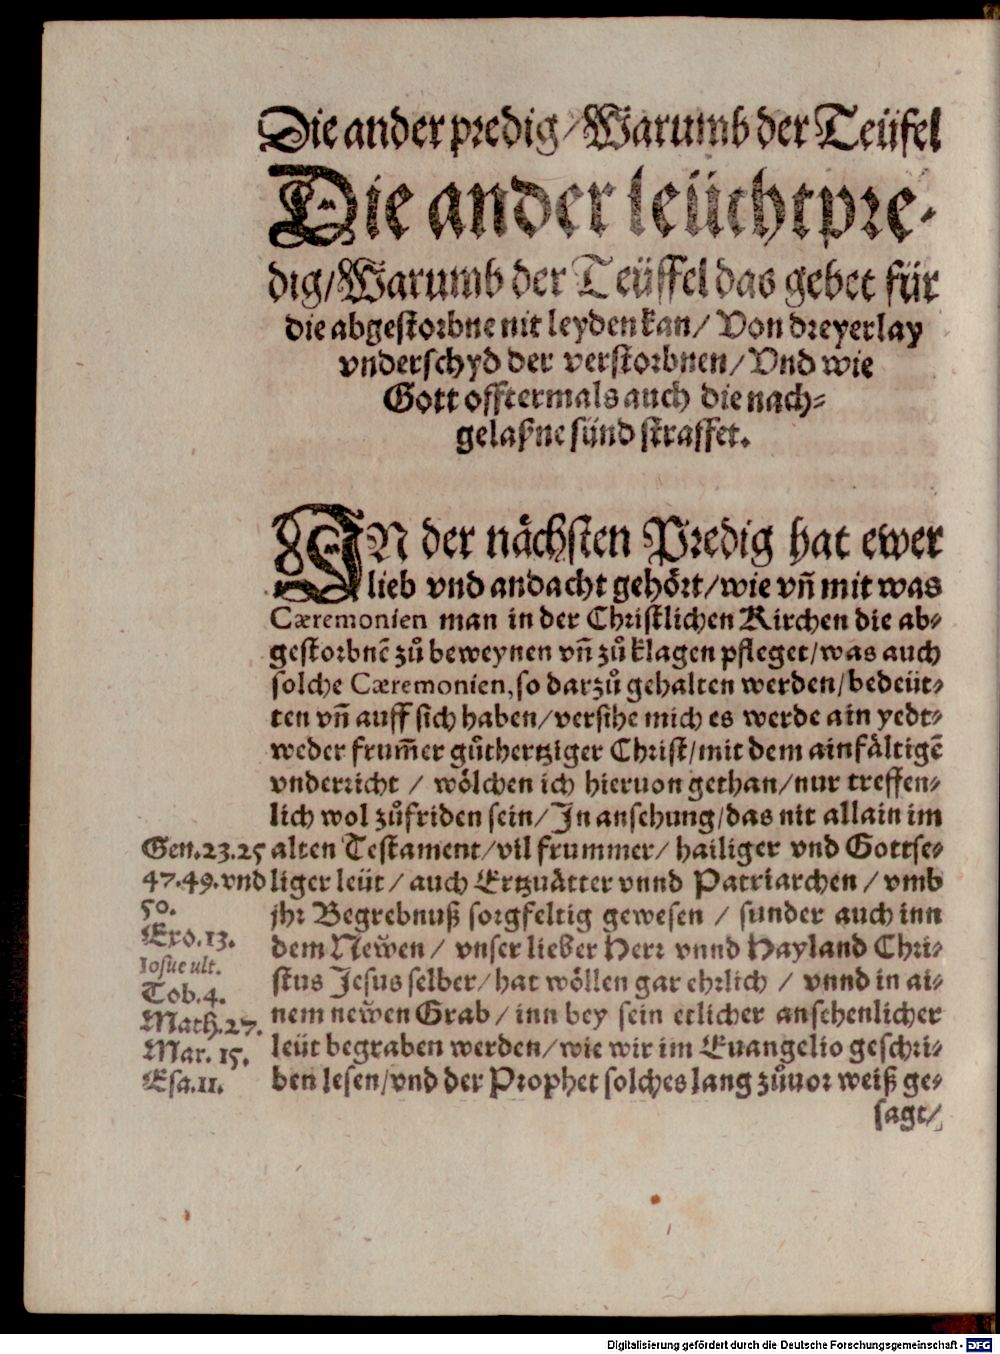 Die ander predig / Warumb der Teüfel
Die ander leüchtpre-
dig / Warumb der Teüffel das gebet für
die abgestorbne nit leyden kan / Von dreyerlay
vnderschyd der verstorbnen / Vnd wie
Gott offtermals auch die nach-
gelaßne sünd straffet.
IN der nächsten Predig hat ewer
lieb vnd andacht gehört / wie vñ mit was
Cæremonien man in der Christlichen Kirchen die ab-
gestorbnẽ zů beweynen vñ zů klagen pfleget / was auch
solche Cæremonien, so darzů gehalten werden / bedeüt-
ten vñ auff sich haben / versihe mich es werde ain yedt-
weder frum̃er gůthertziger Christ / mit dem ainfältigẽ
vnderricht / wölchen ich hieruon gethan / nur treffen-
lich wol zůfriden sein / In ansehung / das nit allain im
alten Testament / vil frummer / hailiger vnd Gottse-
liger leüt / auch Ertzuätter vnnd Patriarchen / vmb
jhr Begrebnuß sorgfeltig gewesen / sunder auch inn
dem Newen / vnser lieber Herr vnnd Hayland Chri-
stus Jesus selber / hat wöllen gar ehrlich / vnnd in ai-
nem newen Grab / inn bey sein etlicher ansehenlicher
leüt begraben werden / wie wir im Euangelio geschri-
ben lesen / vnd der Prophet solches lang zůuor weiß ge-
sagt /
Gen.23.25
47.49.vnd
50.
Exo.13.
Iosue ult.
Tob.4.
Math.27.
Mar. 15.
Esa.11.
Digitalisierung gefördert durch die Deutsche Forschungsgemeinschaft - DFG